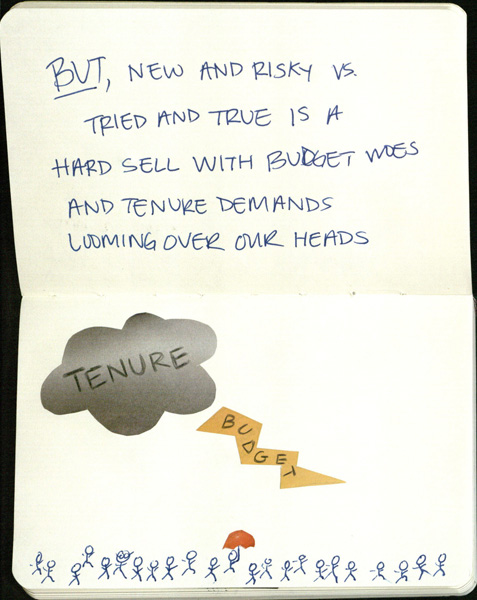 BUT, NEW AND RISKY VS.
TRIED AND TRUE IS A
HARD SELL WITH BUDGET WOES
AND TENURE DEMANDS
LOOMING OVER OUR HEADS
TENURE
BUDGET